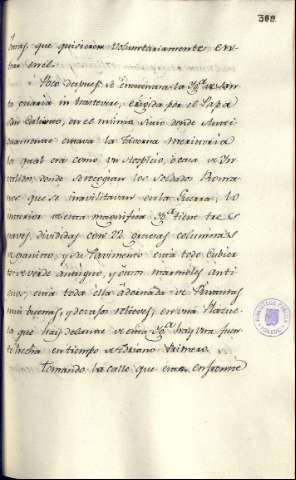 382
otras que quisieron voluntariamente en-
trar en el.
Poco despues se encuentra la Yg.ª de San-
ta Maria in trastevere, erigida por el Papa
San Calixto, en el mismo sitio donde
estava la Taverna meritoria
la qual era como un Hospicio, ò casa de Yn-
validos, donde se recogian los Soldados Roma-
nos que se inavilitavan en la Guerra, lo
interior de esta magnifica Yg.ª tiene tres
naves, divididas con 22 gruesas columnas
de granito, y su Pavimento està todo cubier-
to de verde antiguo, y otros marmoles anti-
guos, està toda ella adornada de Pinturas
mui buenas, y de vasos relieves; en una Plazue-
la que hai delante de esta Yg.ª hay una fuen-
te hecha en tiempo de Adriano Primero
Tomando la calle que està enfrente
BIBLIOTECA PÚBLICA
TOLEDO